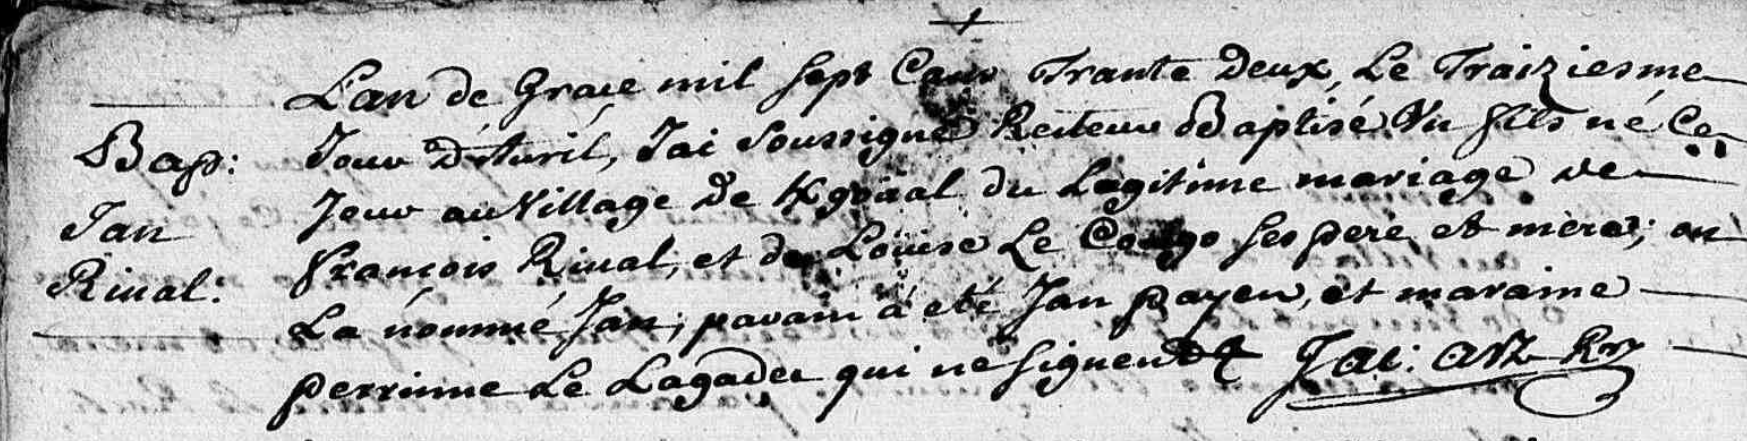 L'an de Grace mil sept Cent Trante Deux, Le Traiziesme
Bap: Jour D'Avril, J'ai Soussigné Recteur Baptisé Un fils né Ce
Jour au Village De du Legitime mariage de
Jan
François Rival, et de Louise Le ses pere et mere; on
Rival: La nommé Jan; parain a eté Jan payen, et maraine
perrinne Le Lagadec qui ne signent Jac: Rr